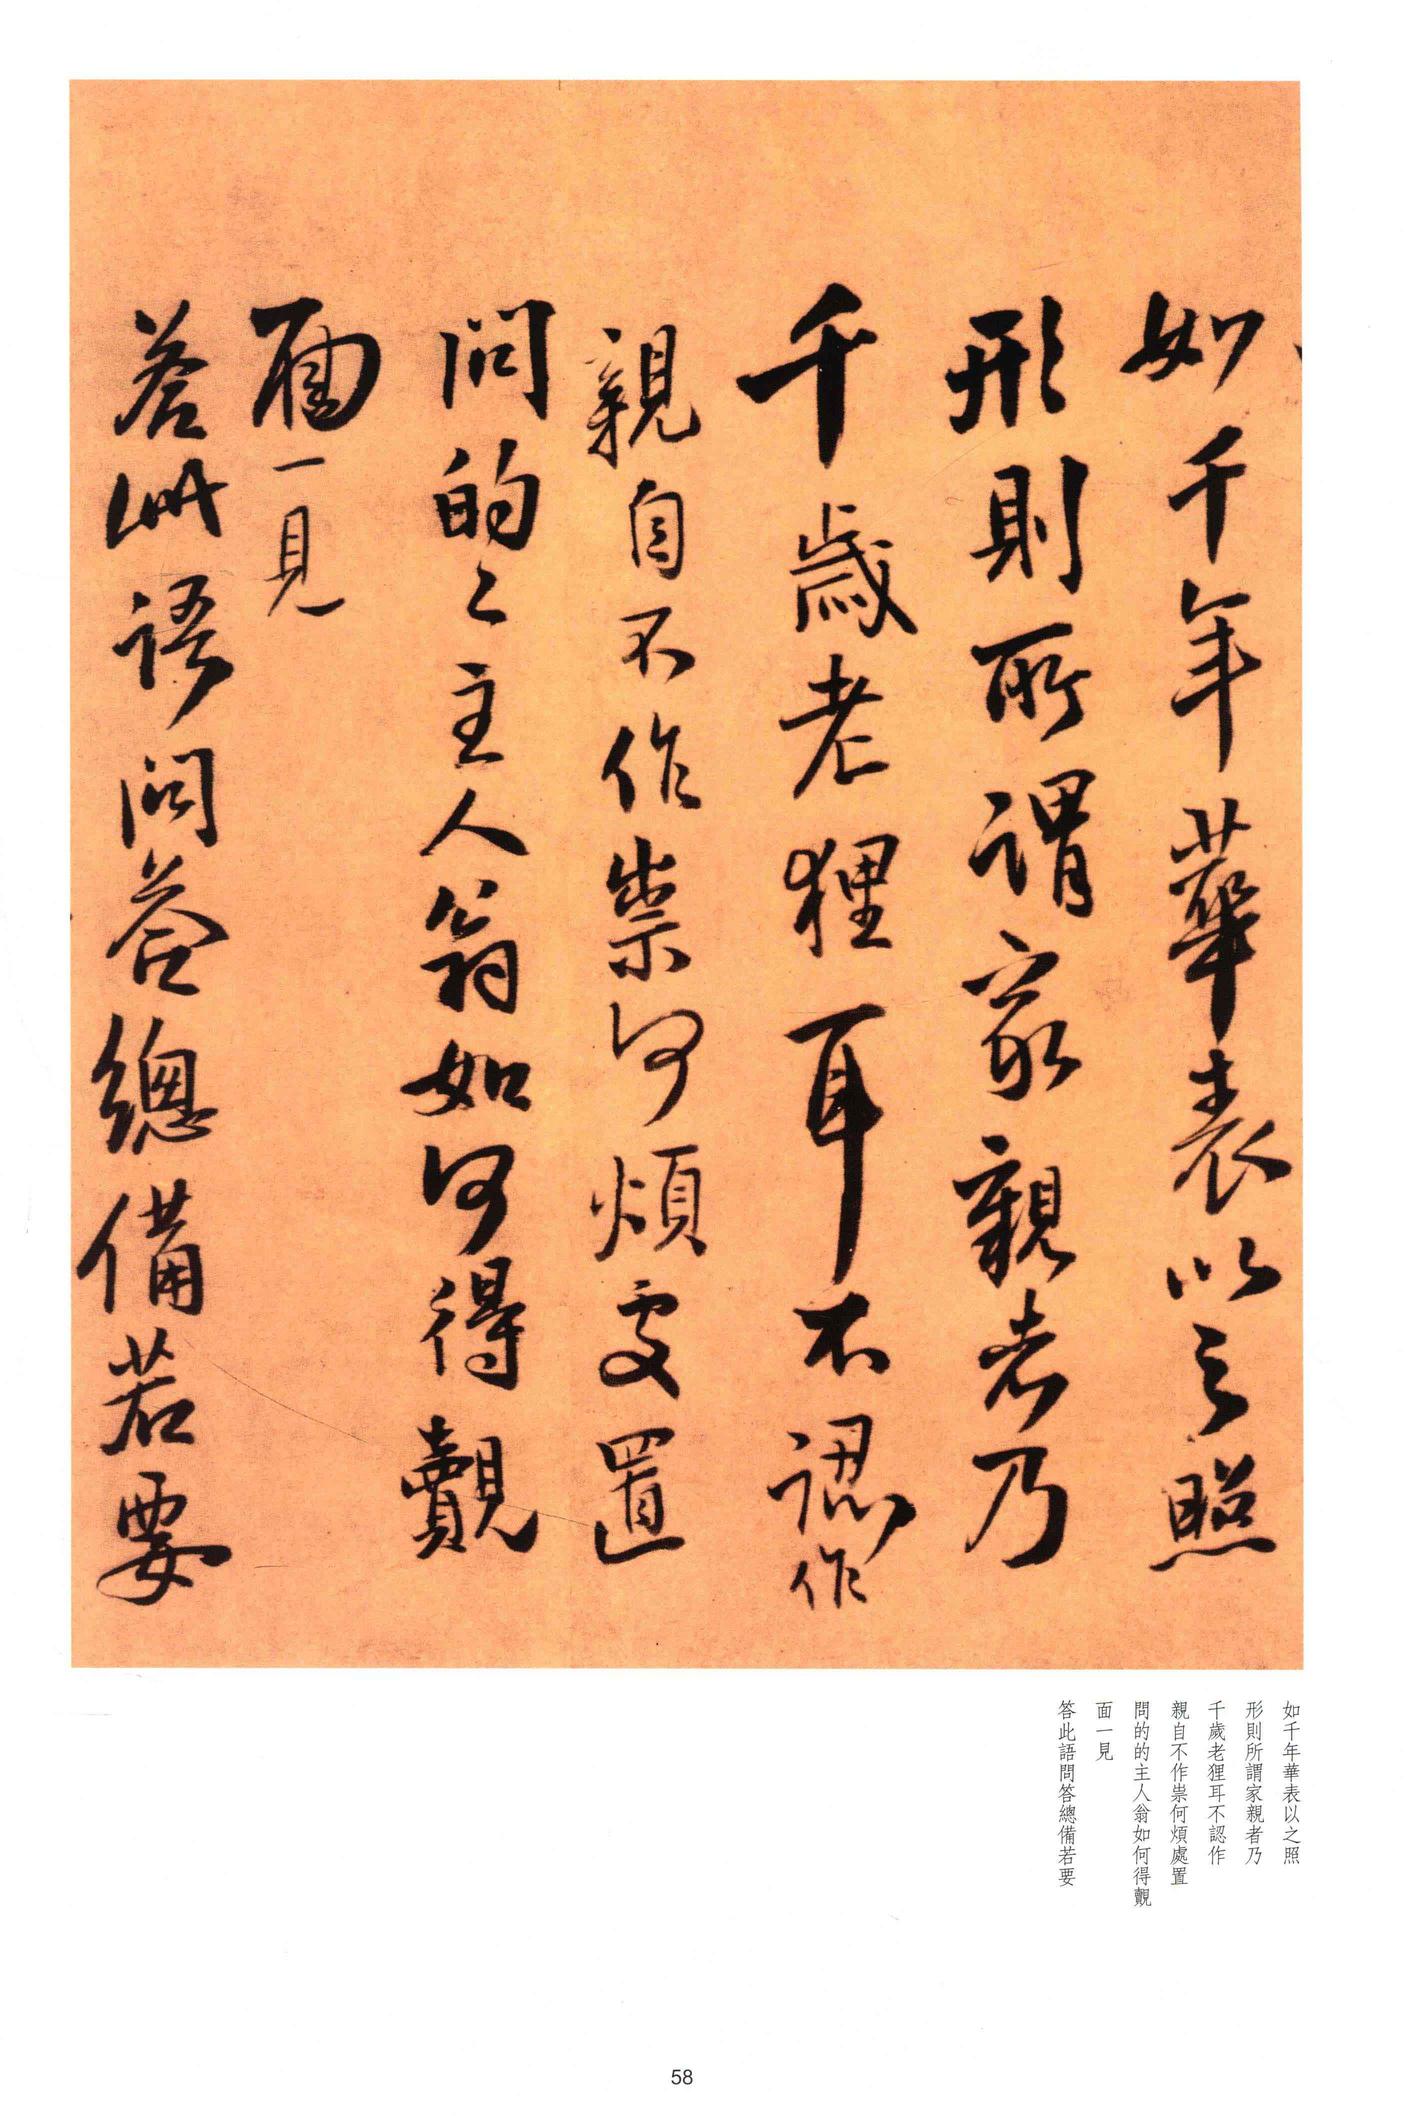 如千年華表以之照
形則所謂家親者乃
千歲老狸耳不認作
親自不作祟何煩處置
問的〻主人翁如何得覿
面一見
答此語問答總備若要
如千年華表以之照
形則所謂家親者乃
千歲老狸耳不認作
親自不作祟何煩處置
問的的主人翁如何得覿
面一見
答此語問答總備若要
58